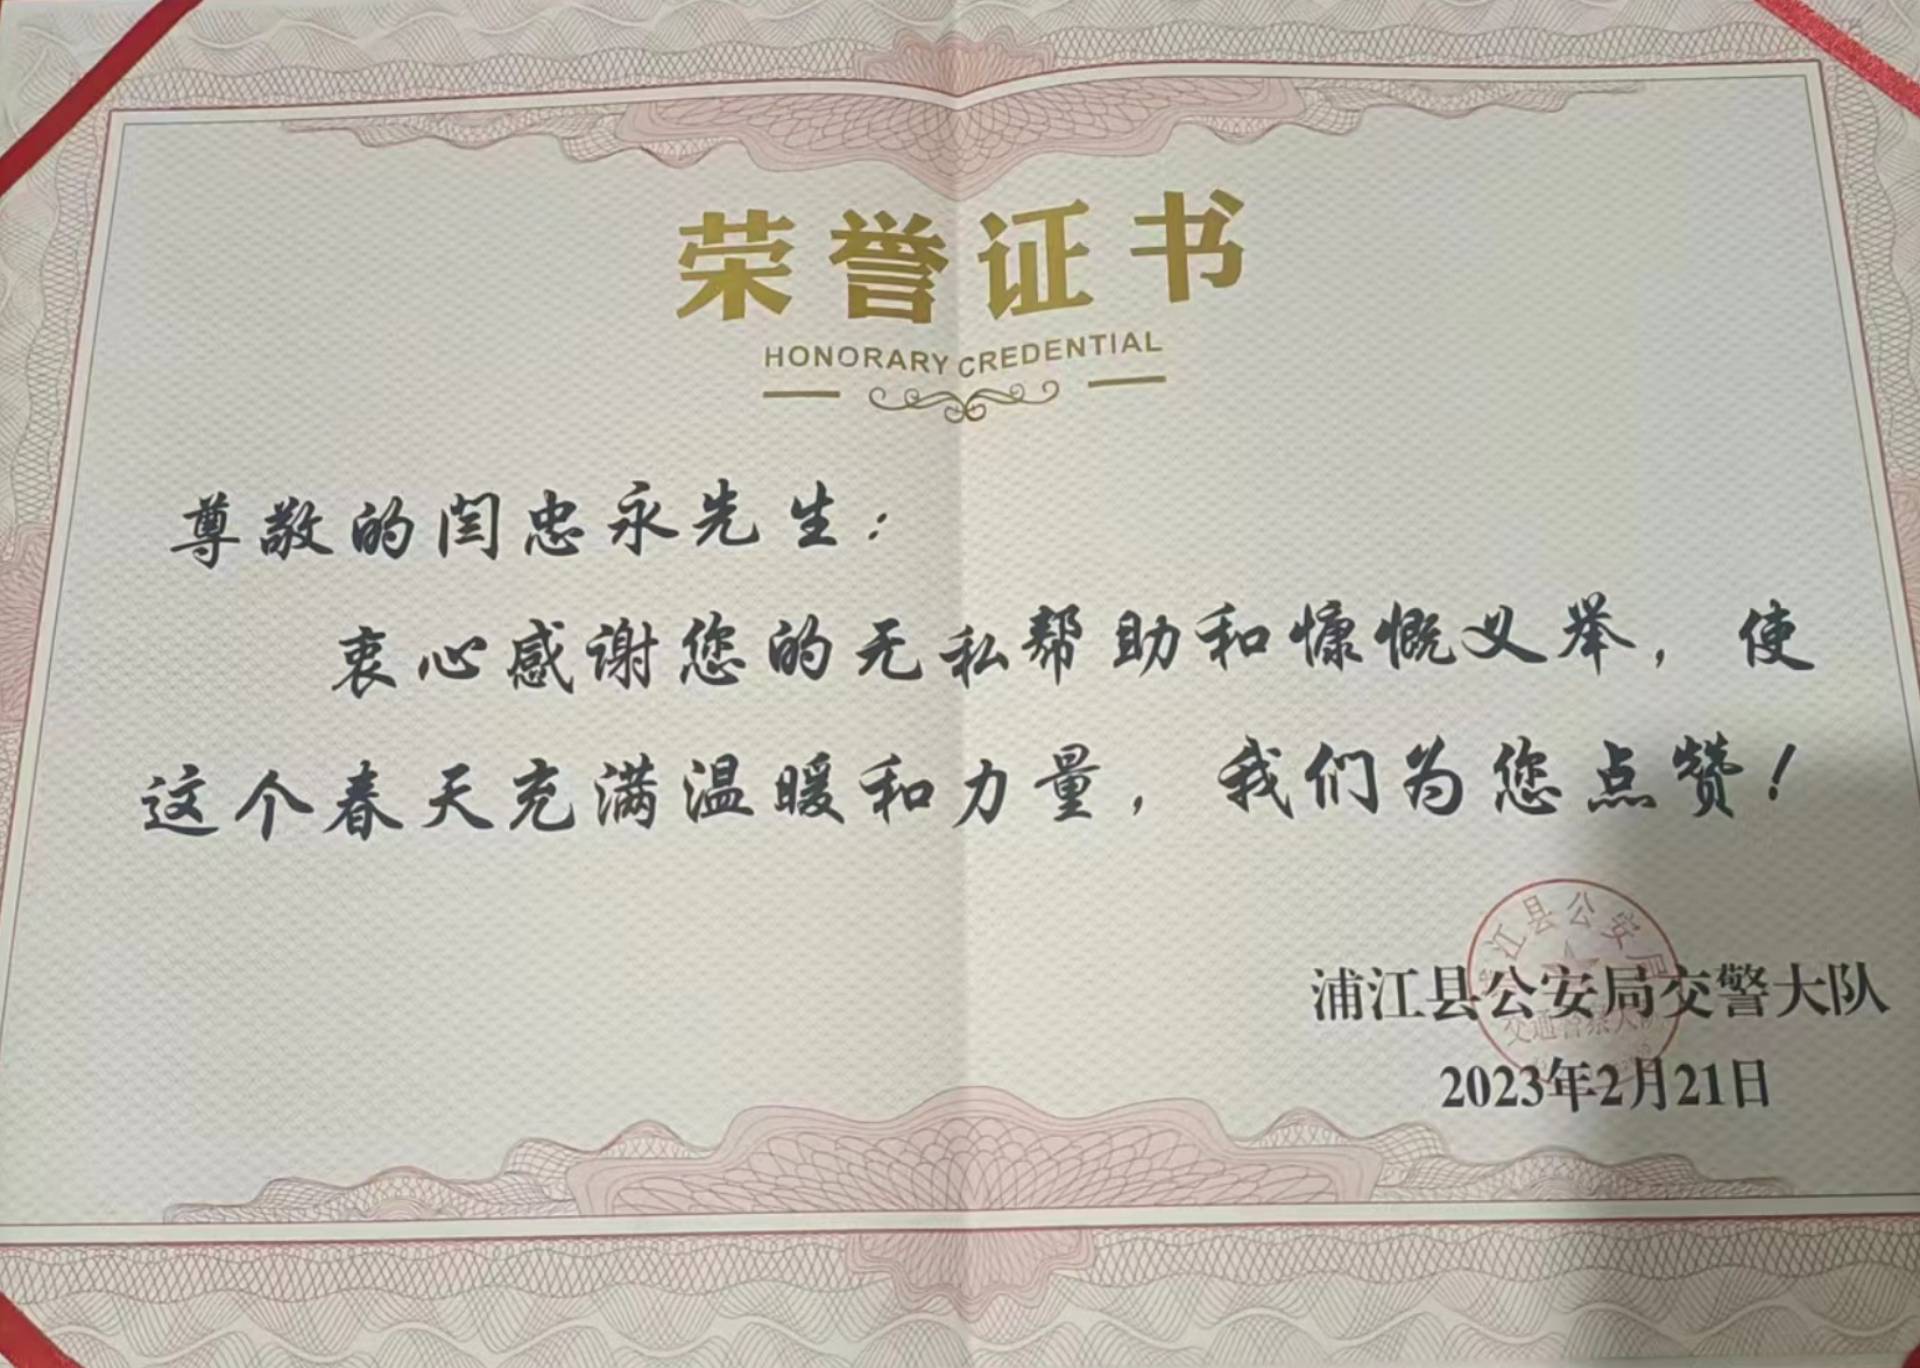 荣誉证书
HONORARY CREDENTIAL
尊敬的闫忠永先生：
衷心感谢您的无私帮助和慷慨义举，使
这个春天充满温暖和力量，我们为您点赞！
江县公安局
交通警察大队
浦江县公安局交警大队
2023年2月21日